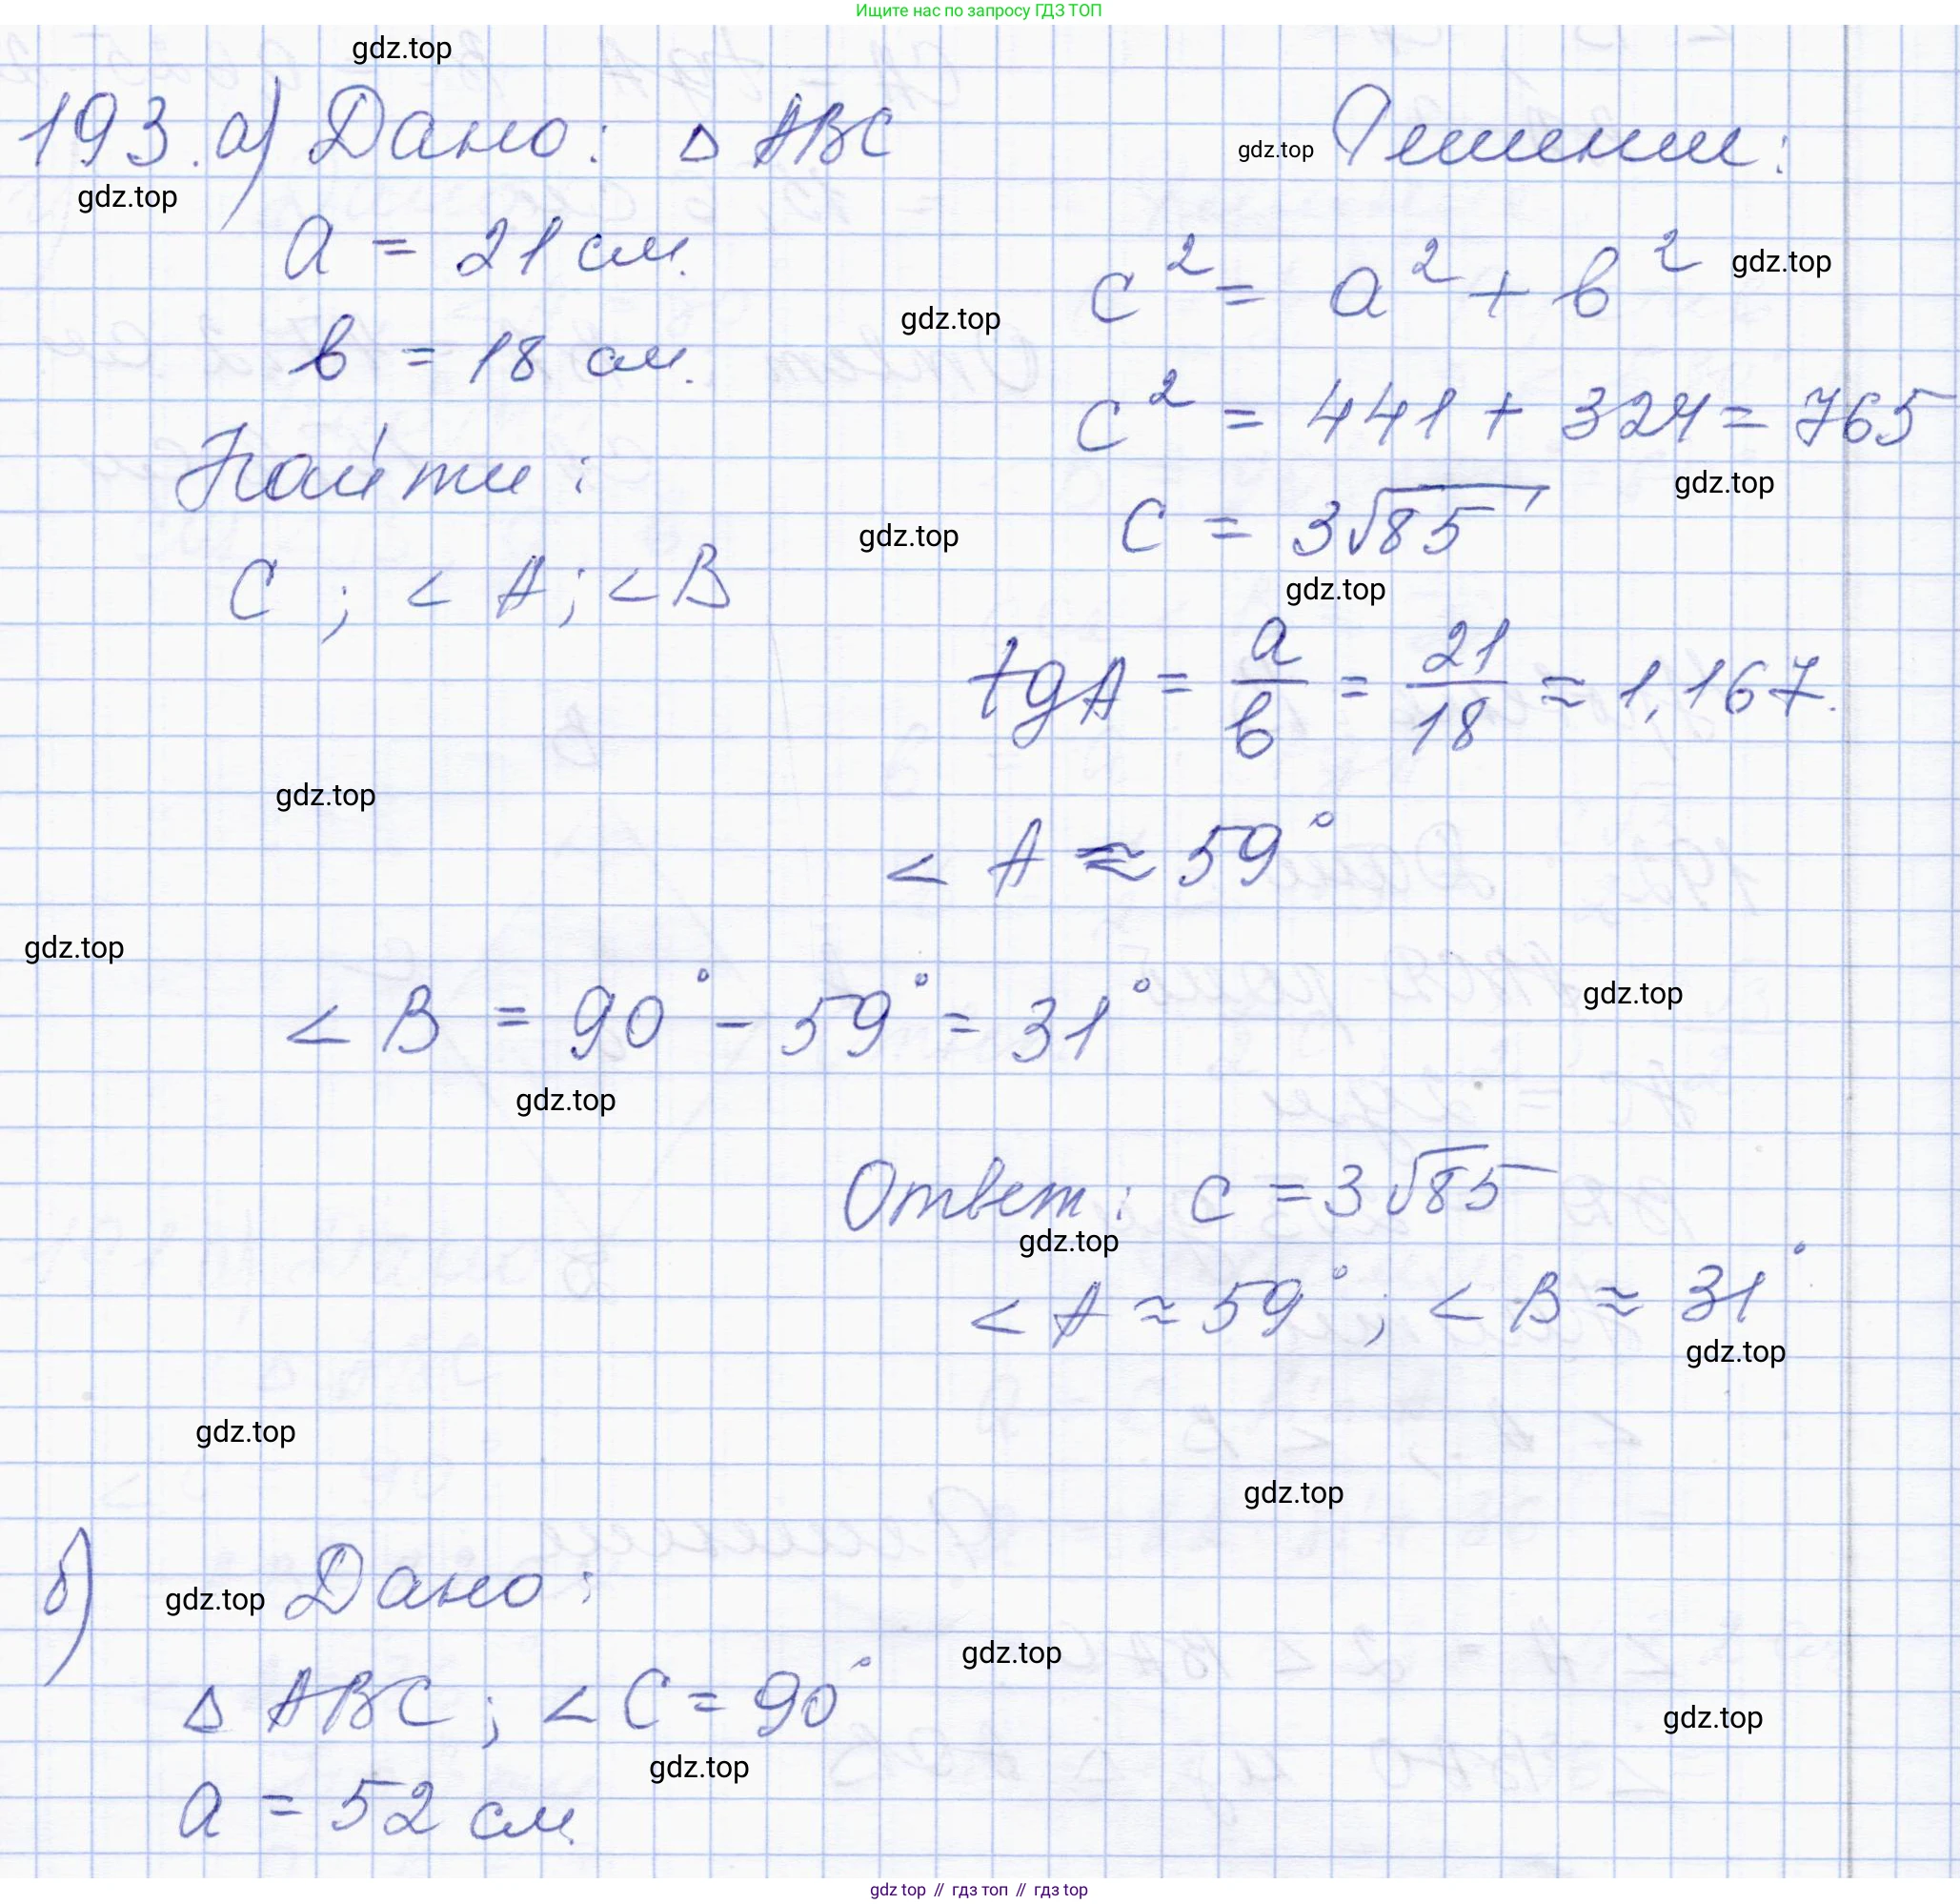 Ищите нас по запросу ГДЗ ТОП
gdz.top
193. а) Дано: △ ABC
gdz.top
a = 21 см.
b = 18 см.
Найти:
C ; < A; < B
gdz.top
Решение:
c² = a² + b² gdz.top
gdz.top
c² = 441 + 324 = 765
gdz.top
c = 3√85
gdz.top
gdz.top
tgA = a/b = 21/18 ≈ 1,167.
gdz.top
< A ≈ 59°
gdz.top
gdz.top
< B = 90° - 59° = 31°
gdz.top
Ответ: c = 3√85
gdz.top
< A ≈ 59°; < B ≈ 31°
gdz.top
gdz.top
gdz.top
б) gdz.top Дано:
gdz.top
△ ABC; < C = 90°
gdz.top
gdz.top
a = 52 см.
gdz top // гдз топ // гдз top